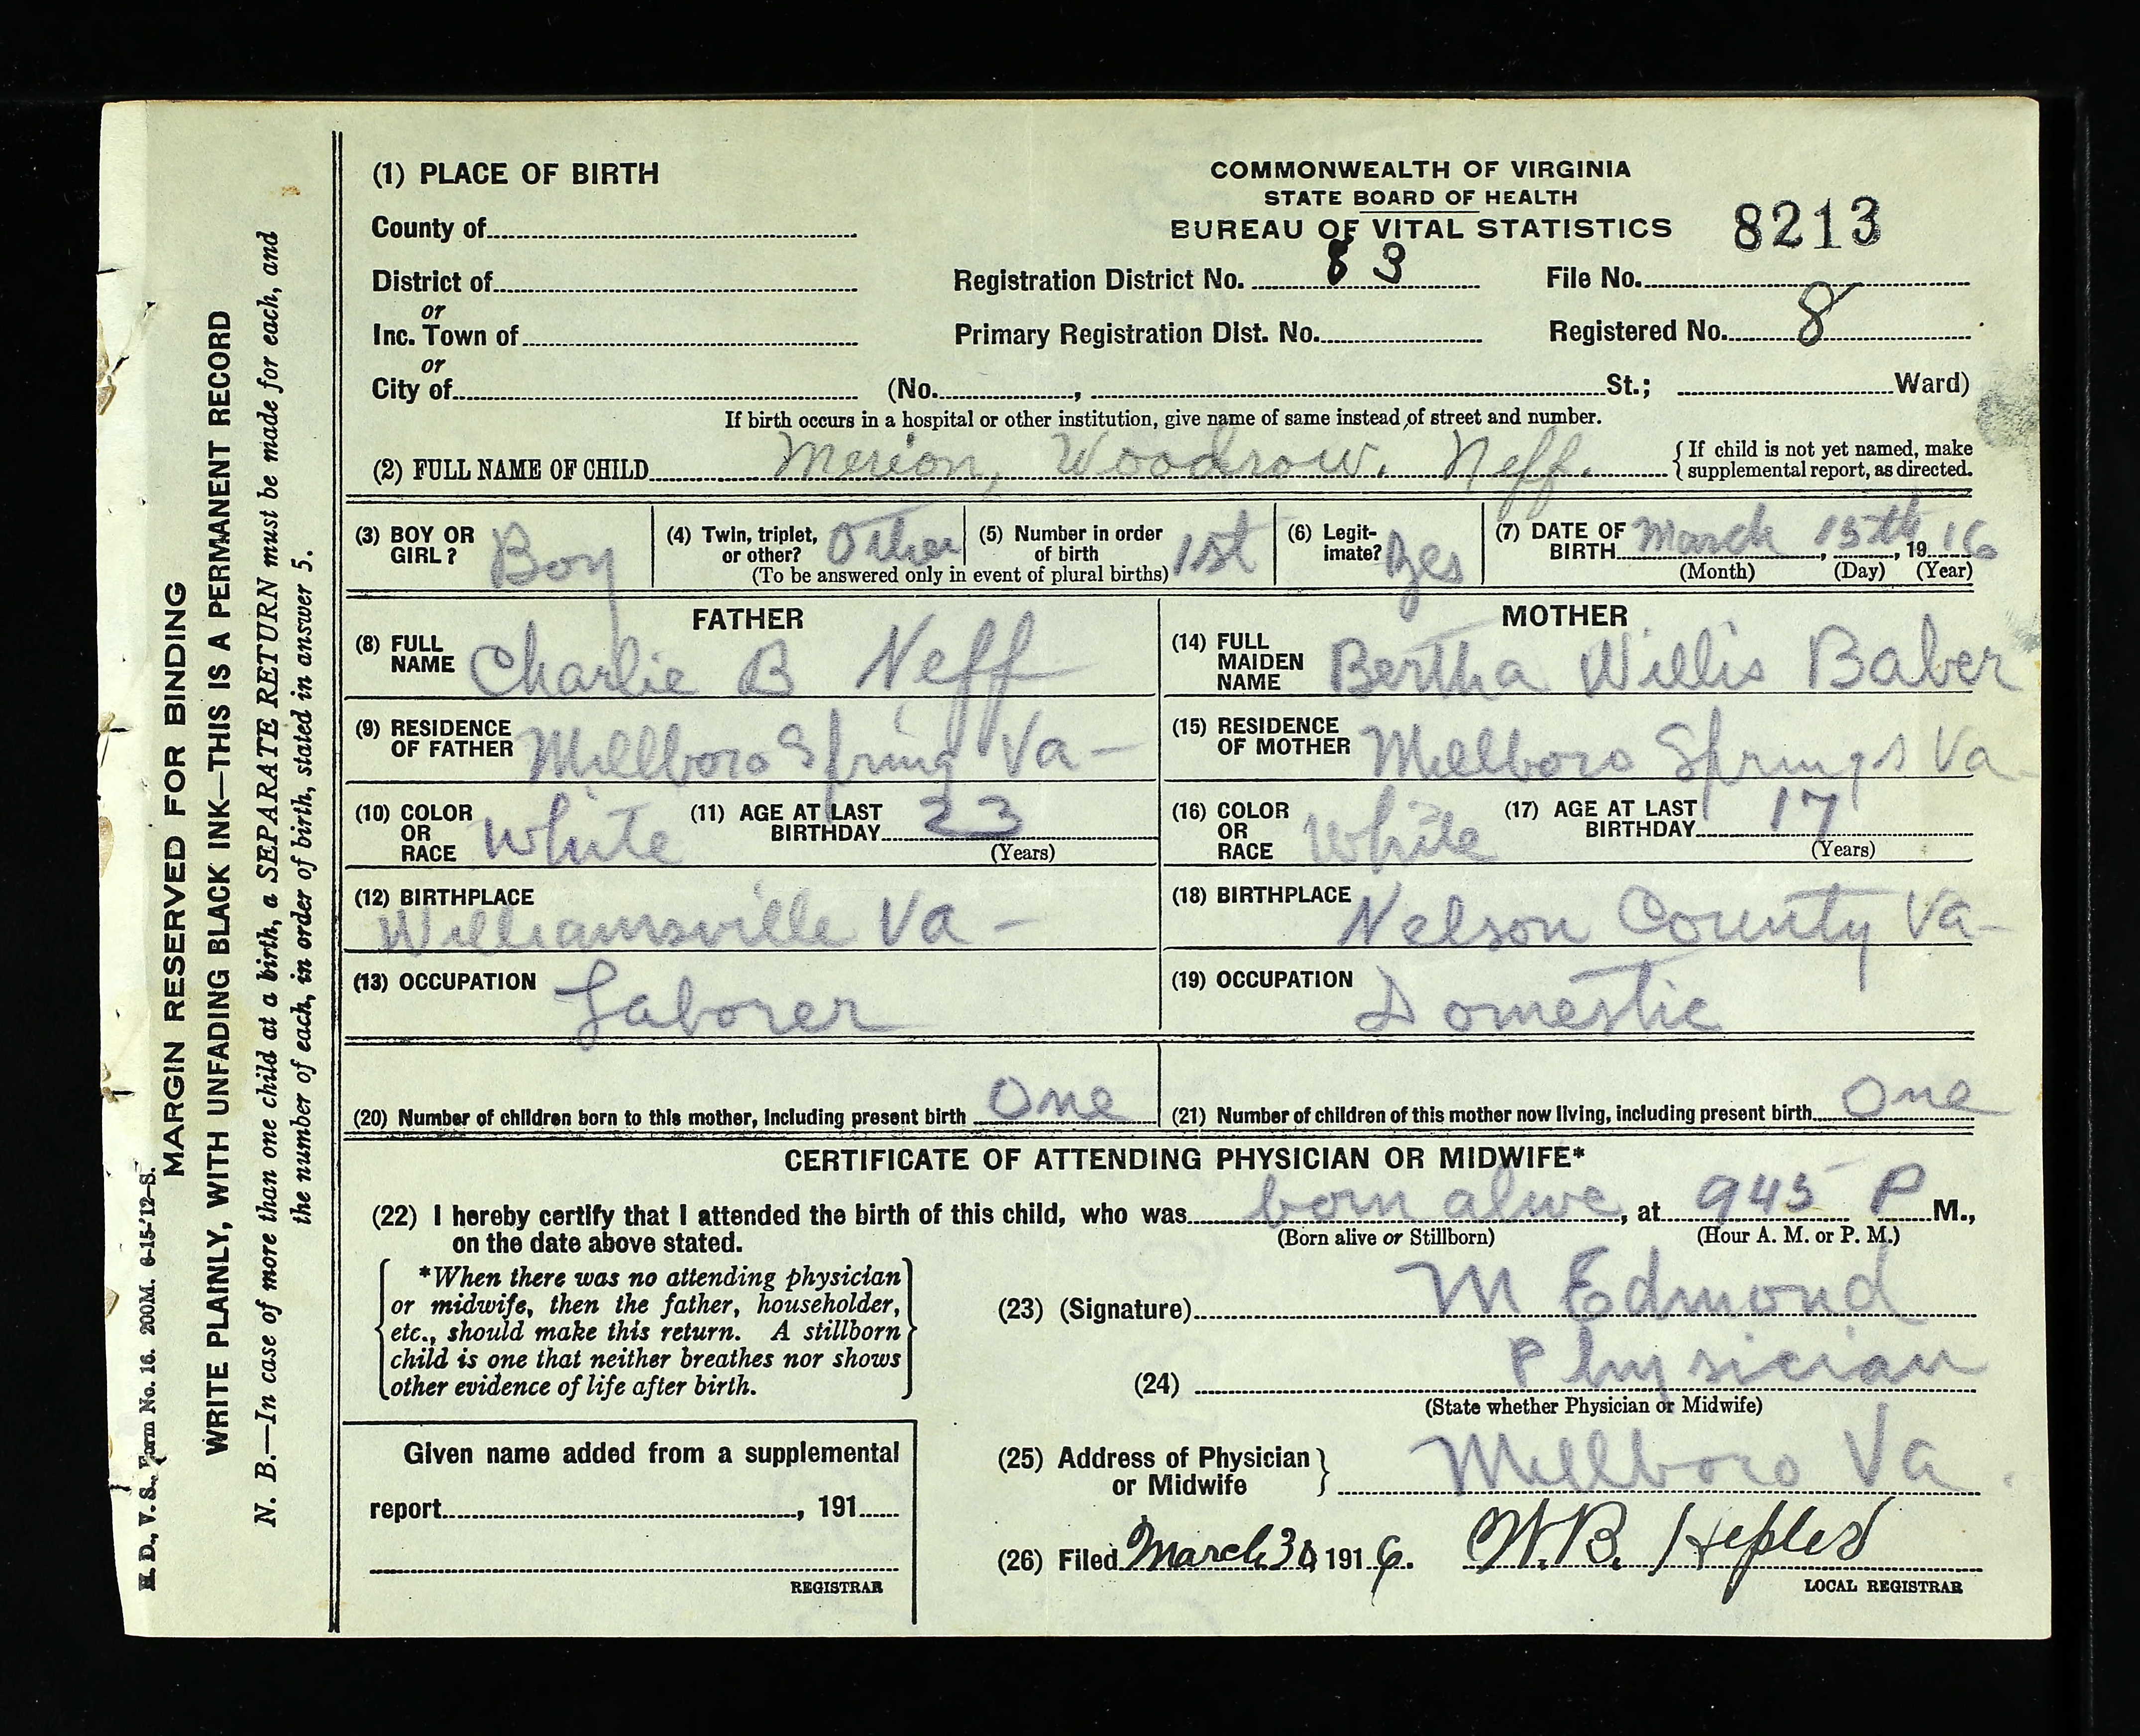 (1) PLACE OF BIRTH
COMMONWEALTH OF VIRGINIA
STATE BOARD OF HEALTH
BUREAU OF VITAL STATISTICS
8213
County of
District of
or
Inc. Town of
or
City of
Registration District No. 83
File No.
Primary Registration Dist. No.
Registered No. 8
(No. , St.; Ward)
If birth occurs in a hospital or other institution, give name of same instead of street and number.
(2) FULL NAME OF CHILD Merion, Woodrow. Neff.
{ If child is not yet named, make
supplemental report, as directed.
(3) BOY OR GIRL? Boy
(4) Twin, triplet, or other? Other
(5) Number in order of birth 1st
(To be answered only in event of plural births)
(6) Legitimate? Yes
(7) DATE OF BIRTH March, 15th, 1916
(Month) (Day) (Year)
FATHER
(8) FULL NAME Charlie B Neff
(9) RESIDENCE OF FATHER Millboro Spring Va-
(10) COLOR OR RACE White
(11) AGE AT LAST BIRTHDAY 23
(Years)
(12) BIRTHPLACE
Williamsville Va-
(13) OCCUPATION Laborer
MOTHER
(14) FULL MAIDEN NAME Bertha Willis Baber
(15) RESIDENCE OF MOTHER Millboro Springs Va-
(16) COLOR OR RACE White
(17) AGE AT LAST BIRTHDAY 17
(Years)
(18) BIRTHPLACE Nelson County Va-
(19) OCCUPATION Domestic
(20) Number of children born to this mother, including present birth One
(21) Number of children of this mother now living, including present birth One
CERTIFICATE OF ATTENDING PHYSICIAN OR MIDWIFE*
(22) I hereby certify that I attended the birth of this child, who was born alive, at 945 P M.,
on the date above stated.
(Born alive or Stillborn) (Hour A. M. or P. M.)
*When there was no attending physician
or midwife, then the father, householder,
etc., should make this return. A stillborn
child is one that neither breathes nor shows
other evidence of life after birth.
(23) (Signature) M Edmond
(24) Physician
(State whether Physician or Midwife)
Given name added from a supplemental
report , 191
REGISTRAR
(25) Address of Physician or Midwife } Millboro Va.
(26) Filed March 30 1916. W.B. Hepler
LOCAL REGISTRAR
H. D., V. S., Form No. 16. 200M. 6-15-'12-S.
MARGIN RESERVED FOR BINDING
WRITE PLAINLY, WITH UNFADING BLACK INK—THIS IS A PERMANENT RECORD
N. B.—In case of more than one child at a birth, a SEPARATE RETURN must be made for each, and
the number of each, in order of birth, stated in answer 5.